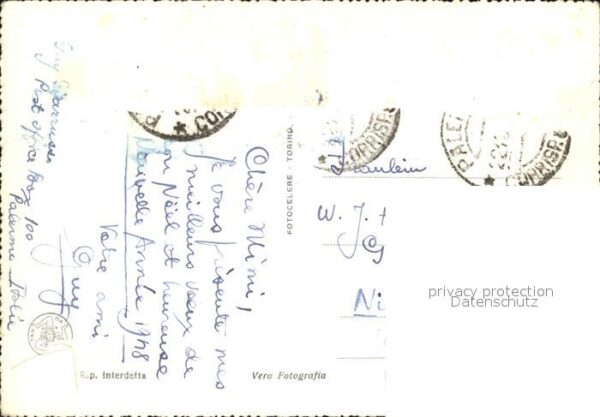 Chère Mimi,
Je vous présente mes
meilleurs vœux de
bon Noël et heureuse
Nouvelle Année 1948
Votre ami
Guy
Post office Box 100
Palermo Italie
FOTOCELERE - TORINO
R.p. interdetta
Vera Fotografia
Fräulein
W. J.
Ni
PALE
CORRISP.
privacy protection
Datenschutz